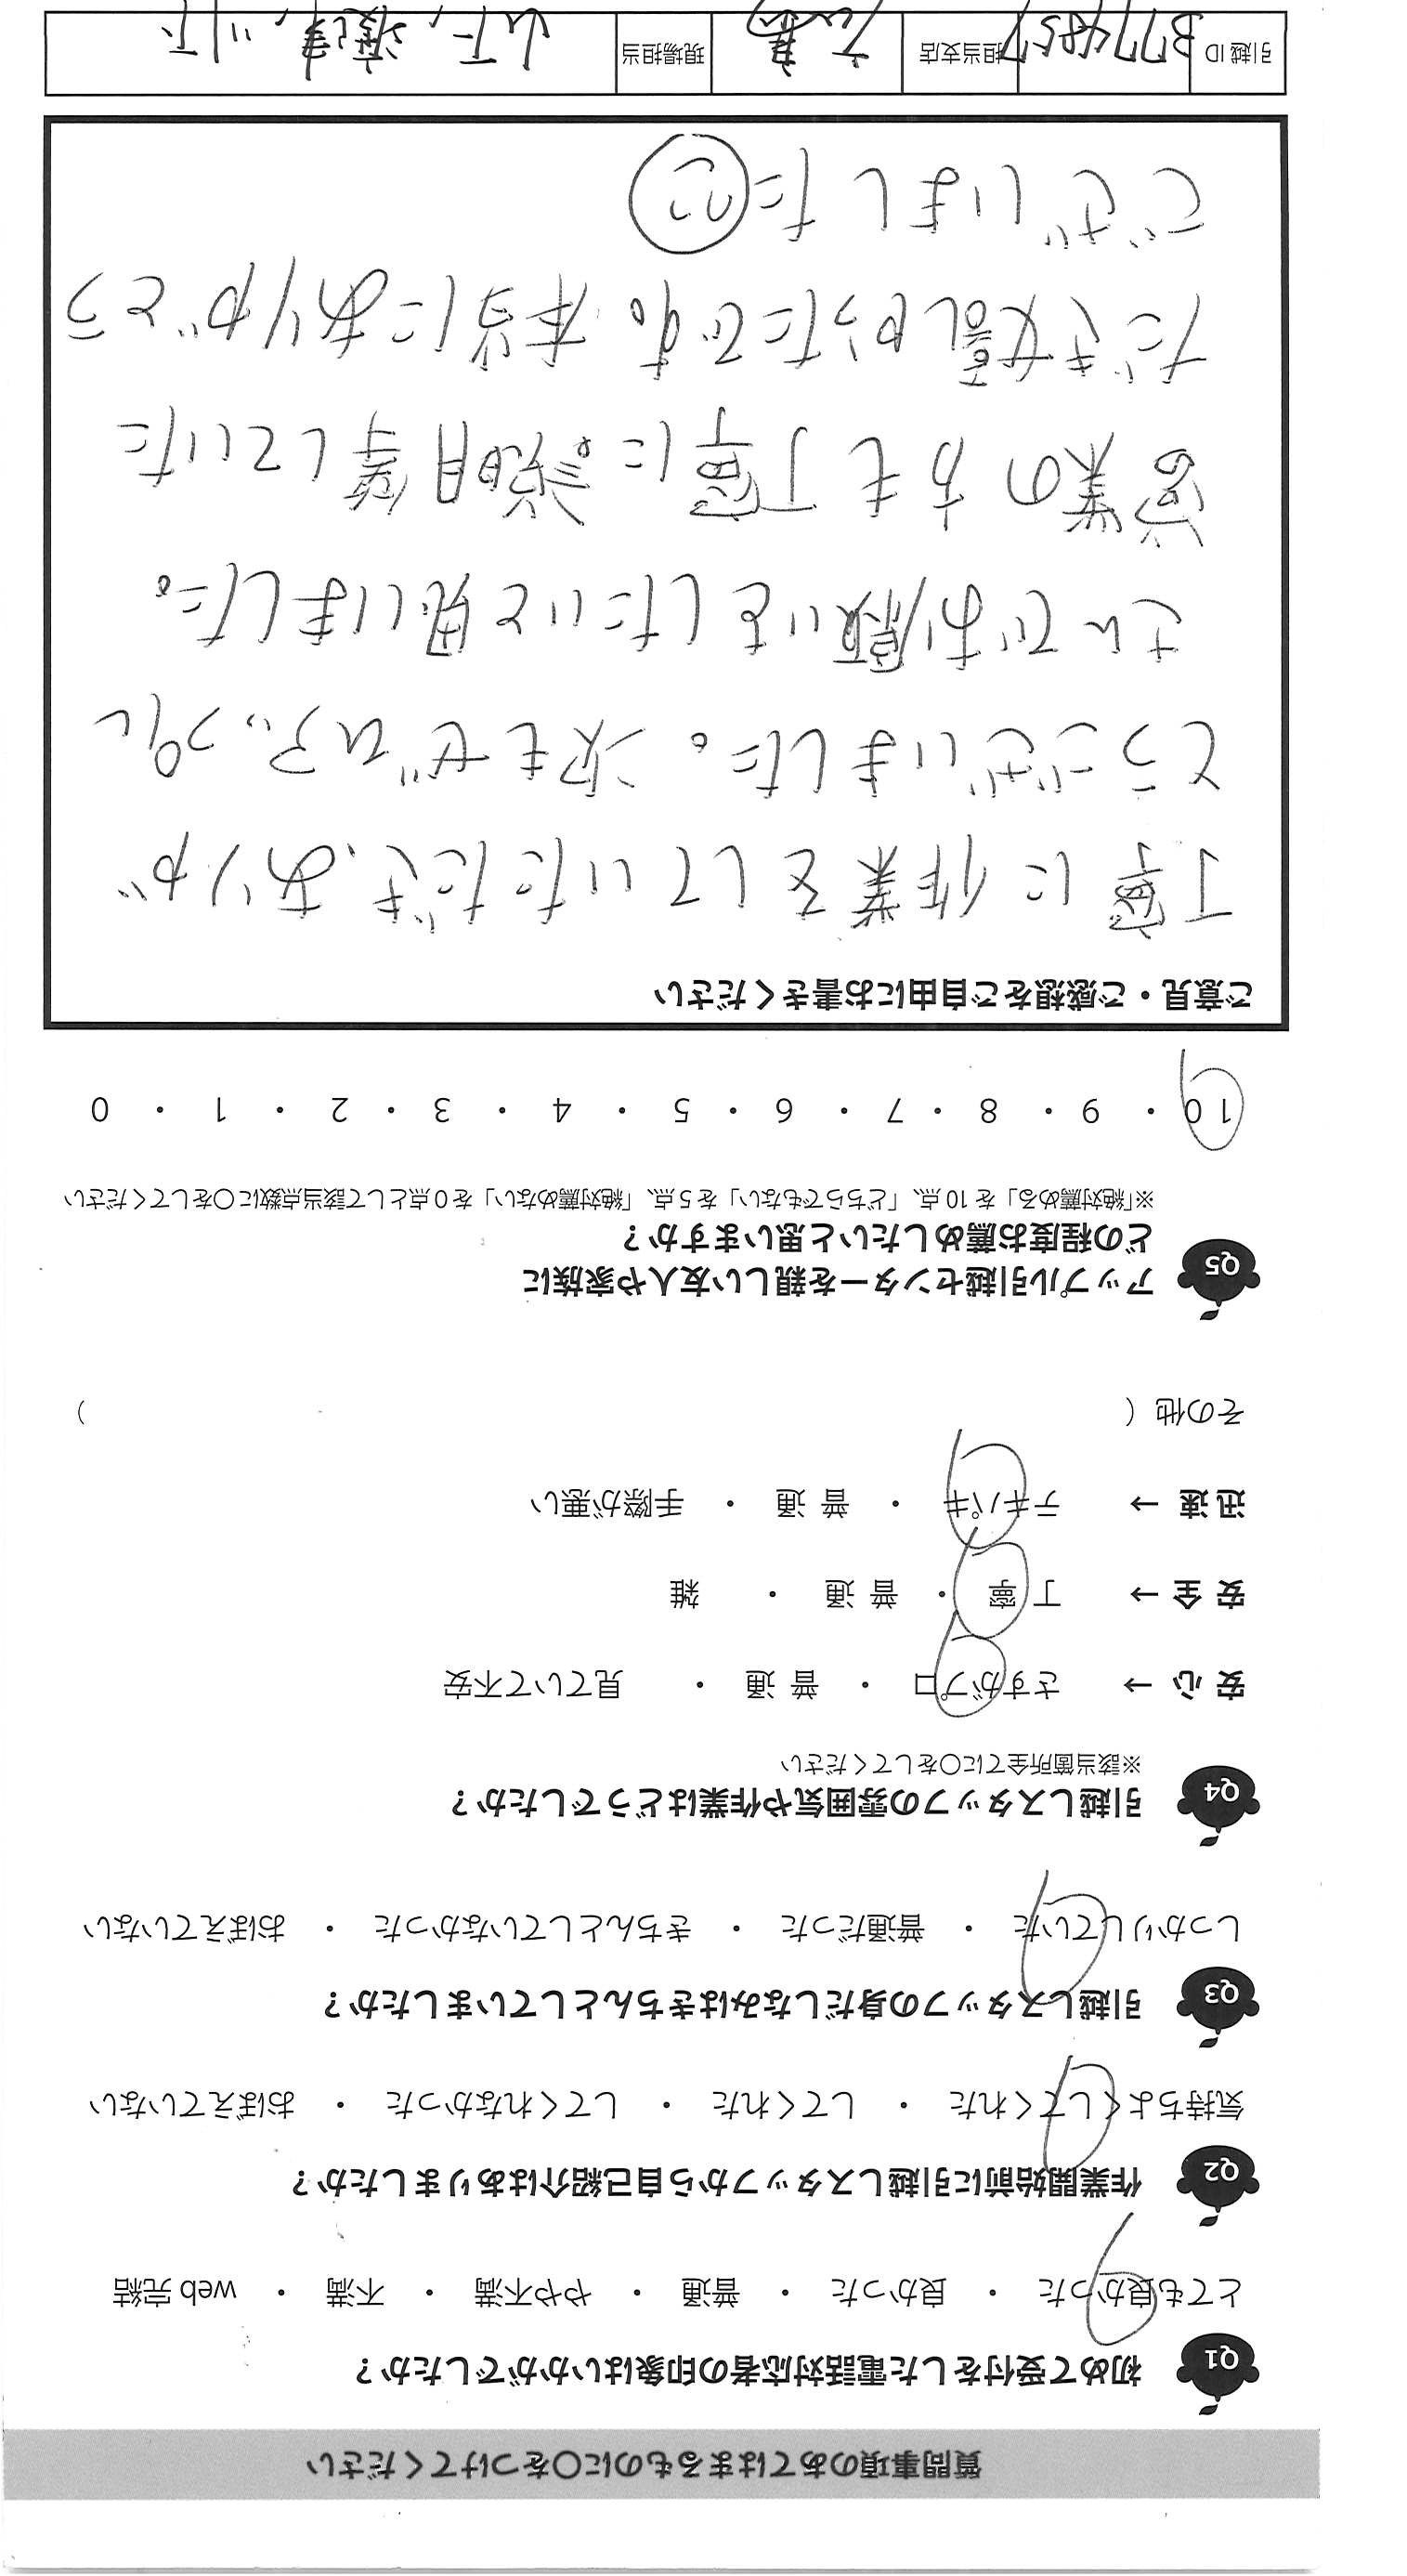 質問事項のあてはまるものに〇をつけてください
Q1 初めて受付をした電話対応者の印象はいかがでしたか？
とても良かった ・ 良かった ・ 普通 ・ やや不満 ・ 不満 ・ web 完結
Q2 作業開始前に引越しスタッフから自己紹介はありましたか？
気持ちよくしてくれた ・ してくれた ・ してくれなかった ・ おぼえていない
Q3 引越しスタッフの身だしなみはきちんとしていましたか？
しっかりしていた ・ 普通だった ・ きちんとしていなかった ・ おぼえていない
Q4 引越しスタッフの雰囲気や作業はどうでしたか？
※該当箇所全てに〇をしてください
安 心 → さすがプロ ・ 普 通 ・ 見ていて不安
安 全 → 丁 寧 ・ 普 通 ・ 雑
迅 速 → テキパキ ・ 普 通 ・ 手際が悪い
その他（ ）
Q5 アップル引越センターを親しい友人や家族に
どの程度お薦めしたいと思いますか？
※「絶対薦める」を 10 点、「どちらでもない」を 5 点、「絶対薦めない」を 0 点として該当点数に〇をしてください
10 ・ 9 ・ 8 ・ 7 ・ 6 ・ 5 ・ 4 ・ 3 ・ 2 ・ 1 ・ 0
ご意見・ご感想をご自由にお書きください
丁寧に作業をしていただき、ありが
とうございました。次もぜひアップル
さんでお願いをしたいと思いました。
営業の方も丁寧に説明等していた
だき安心しかったです。本当にありがとう
ございました
引越 ID 担当支店 現場担当 山下,